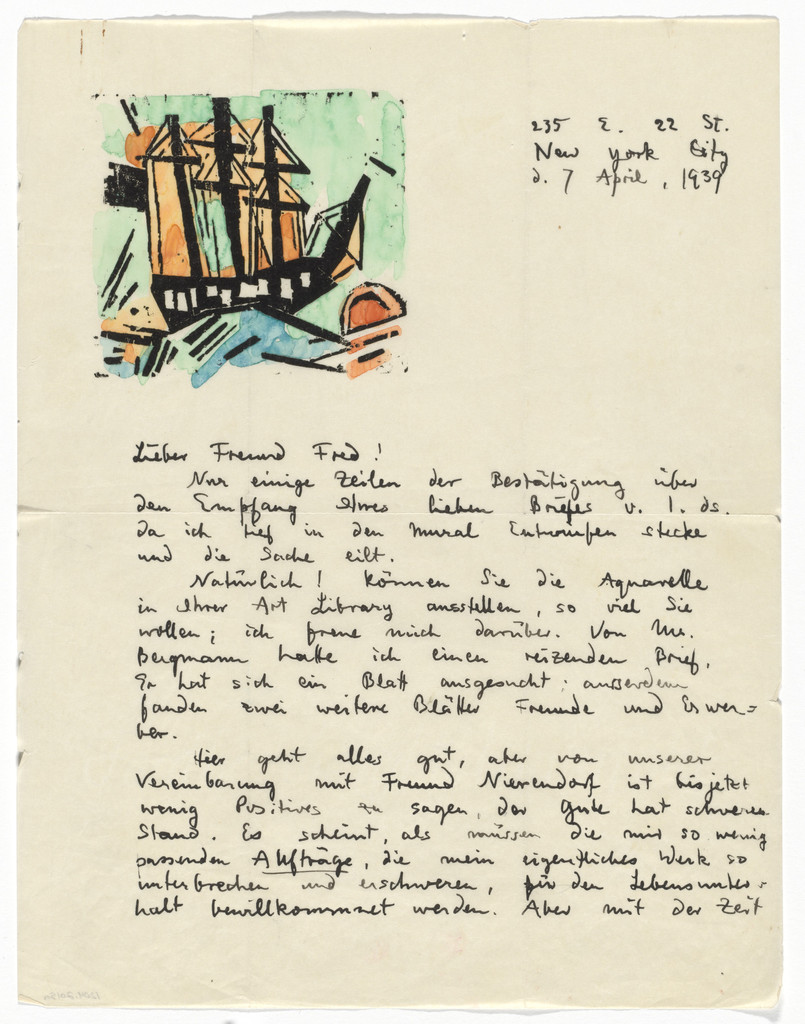 235 E. 22 St.
New York City
d. 7 April, 1939
Lieber Freund Fred!
Nur einige Zeilen der Bestätigung über
den Empfang Ihres lieben Briefes v. 1. ds.
da ich tief in den Mural Entwürfen stecke
und die Sache eilt.
Natürlich! können Sie die Aquarelle
in Ihrer Art Library ausstellen, so viel Sie
wollen; ich freue mich darüber. Von Mr.
Bergmann hatte ich einen reizenden Brief,
Er hat sich ein Blatt ausgesucht; ausserdem
fanden zwei weitere Blätter Freunde und Erwer=
ber.
Hier geht alles gut, aber von unserer
Vereinbarung mit Freund Nierendorf ist bisjetzt
wenig Positives zu sagen, der Gute hat schweren
Stand. Es scheint, als müssen die mir so wenig
passenden Aufträge, die mein eigentliches Werk so
unterbrechen und erschweren, für den Lebensunter=
halt bewillkommnet werden. Aber mit der Zeit